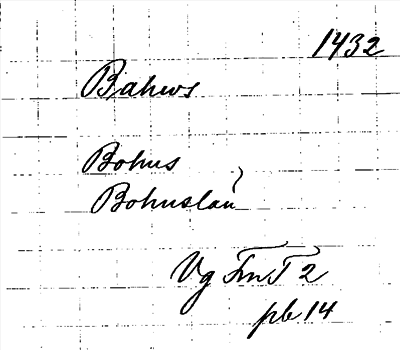 1432
Bahws
Bohus
Bohuslän
Vg FmT 2
pb 14